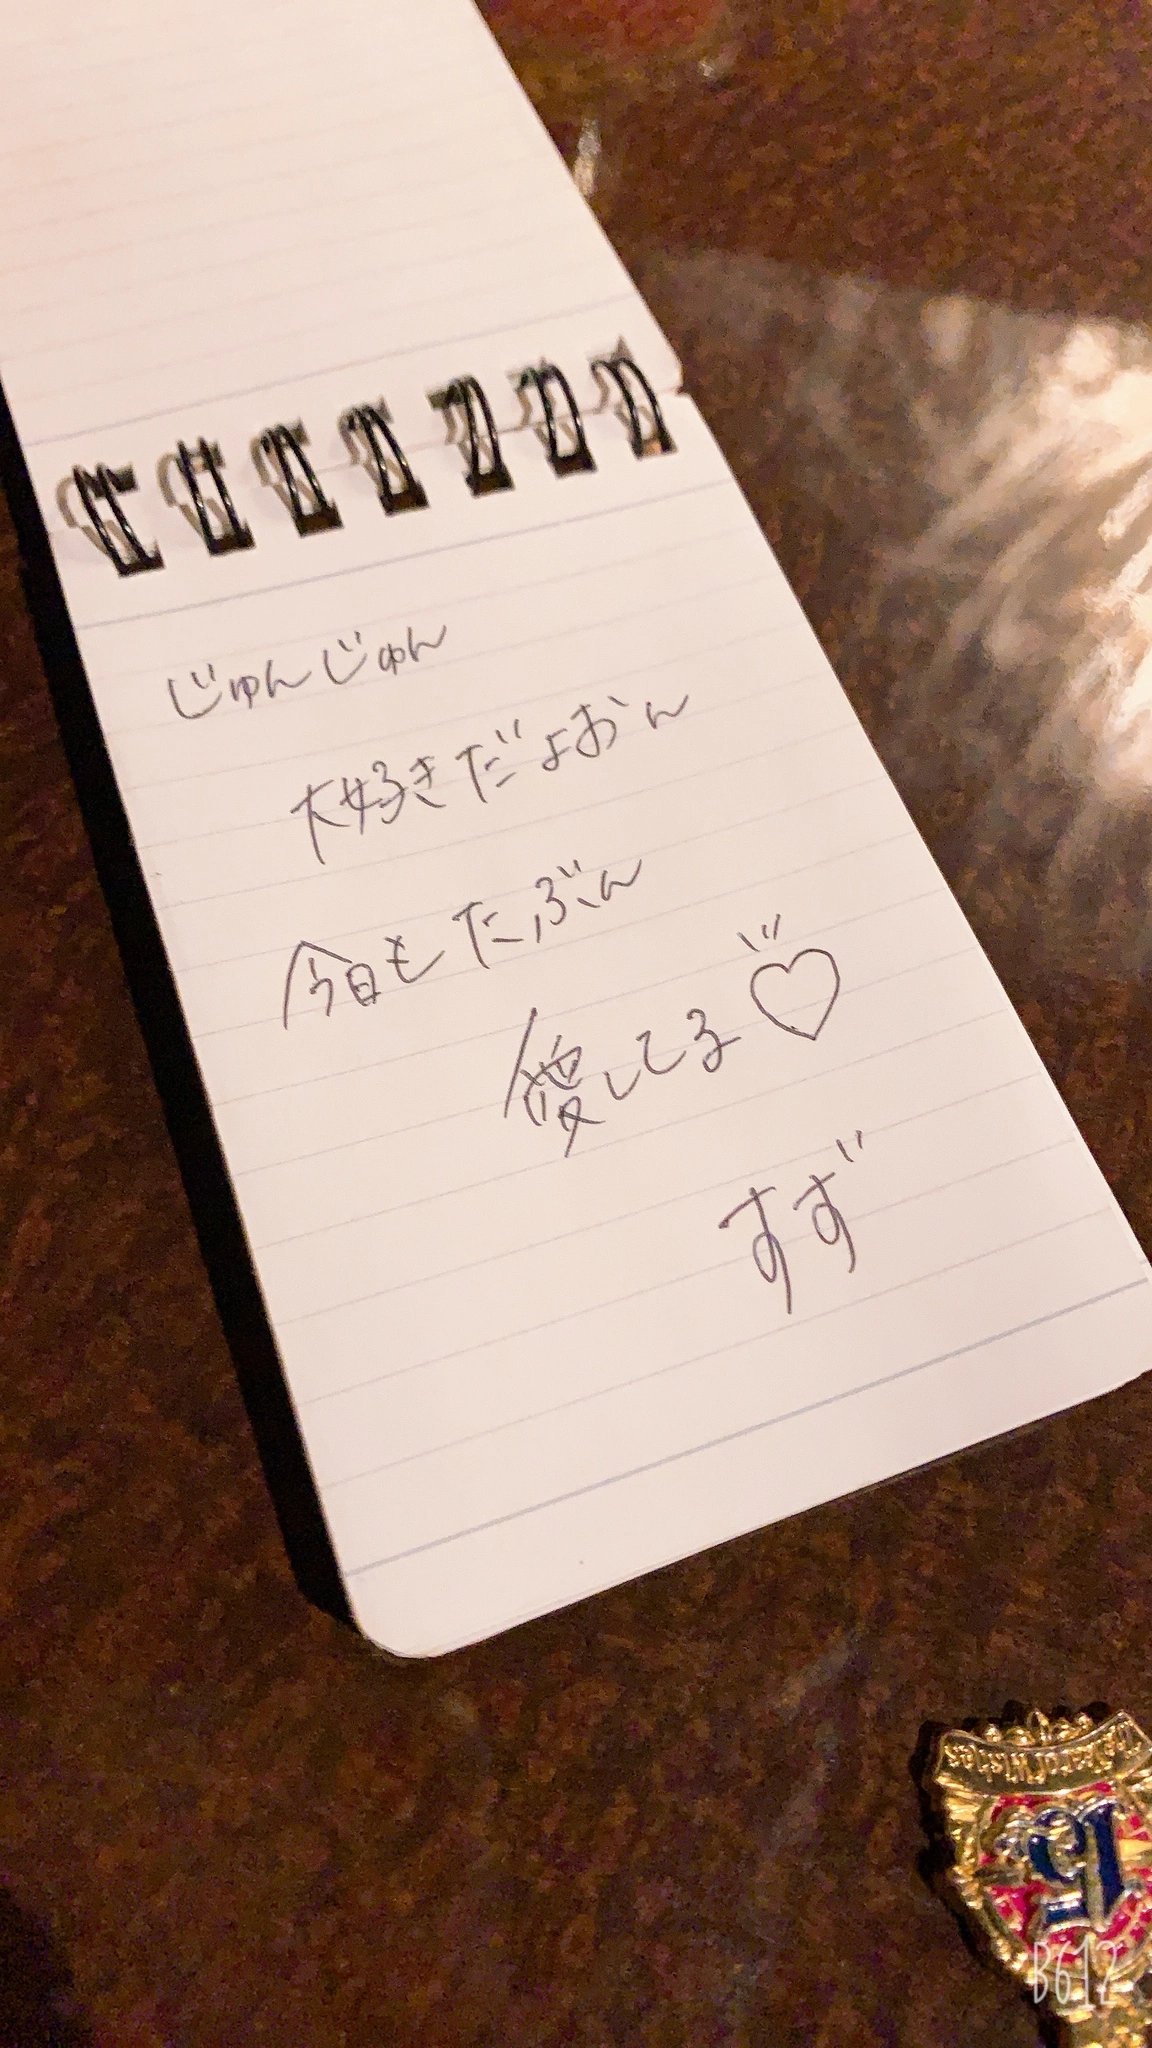 じゅんじゅん
大好きだよおん
今日もたぶん
愛してる♡
すず
The Year of Wishes
15
B612